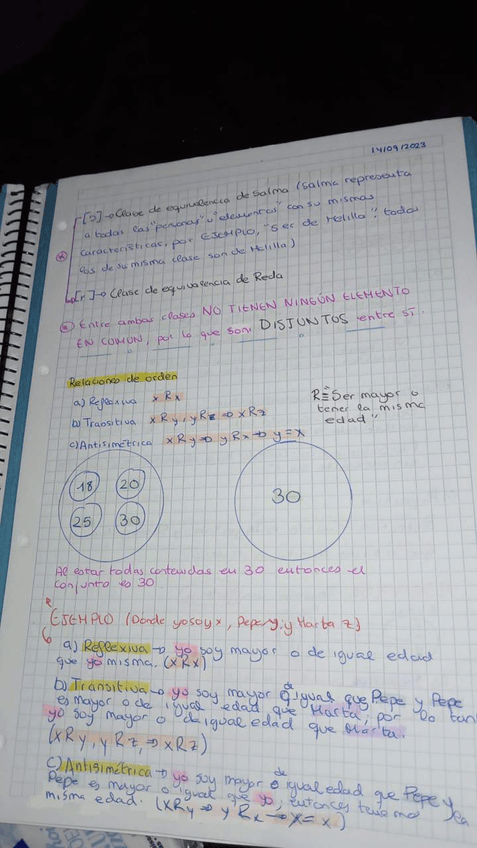 14/09/2023
[s] → Clase de equivalencia de Salma (Salma representa
a todas las "personas" u "elementos" con su mismas
características, por EJEMPLO, "Ser de Melilla": todos
los de su misma clase son de Melilla)
[r] → Clase de equivalencia de Reda
Entre ambas clases NO TIENEN NINGÚN ELEMENTO
EN COMÚN, por lo que son DISJUNTOS entre sí.
Relaciones de orden
a) Reflexiva xRx
b) Transitiva xRy, yRz ⇒ xRz
c) Antisimétrica xRy ⇒ yRx ⇒ y=x
R ≡ "Ser mayor o
tener la misma
edad"
18 20
25 30
30
Al estar todas contenidas en 30 entonces el
conjunto es 30
EJEMPLO (Donde yo soy x, Pepe y, y Marta z)
a) Reflexiva → yo soy mayor o de igual edad
que yo misma. (xRx)
b) Transitiva → yo soy mayor o de igual que Pepe y Pepe
es mayor o de igual edad que Marta, por lo tan
yo soy mayor o de igual edad que Marta.
(xRy, yRz, ⇒ xRz)
c) Antisimétrica → yo soy mayor o de igual edad que Pepe y
Pepe es mayor o igual que yo, entonces tenemos la
misma edad. (xRy ⇒ yRx → y = x)